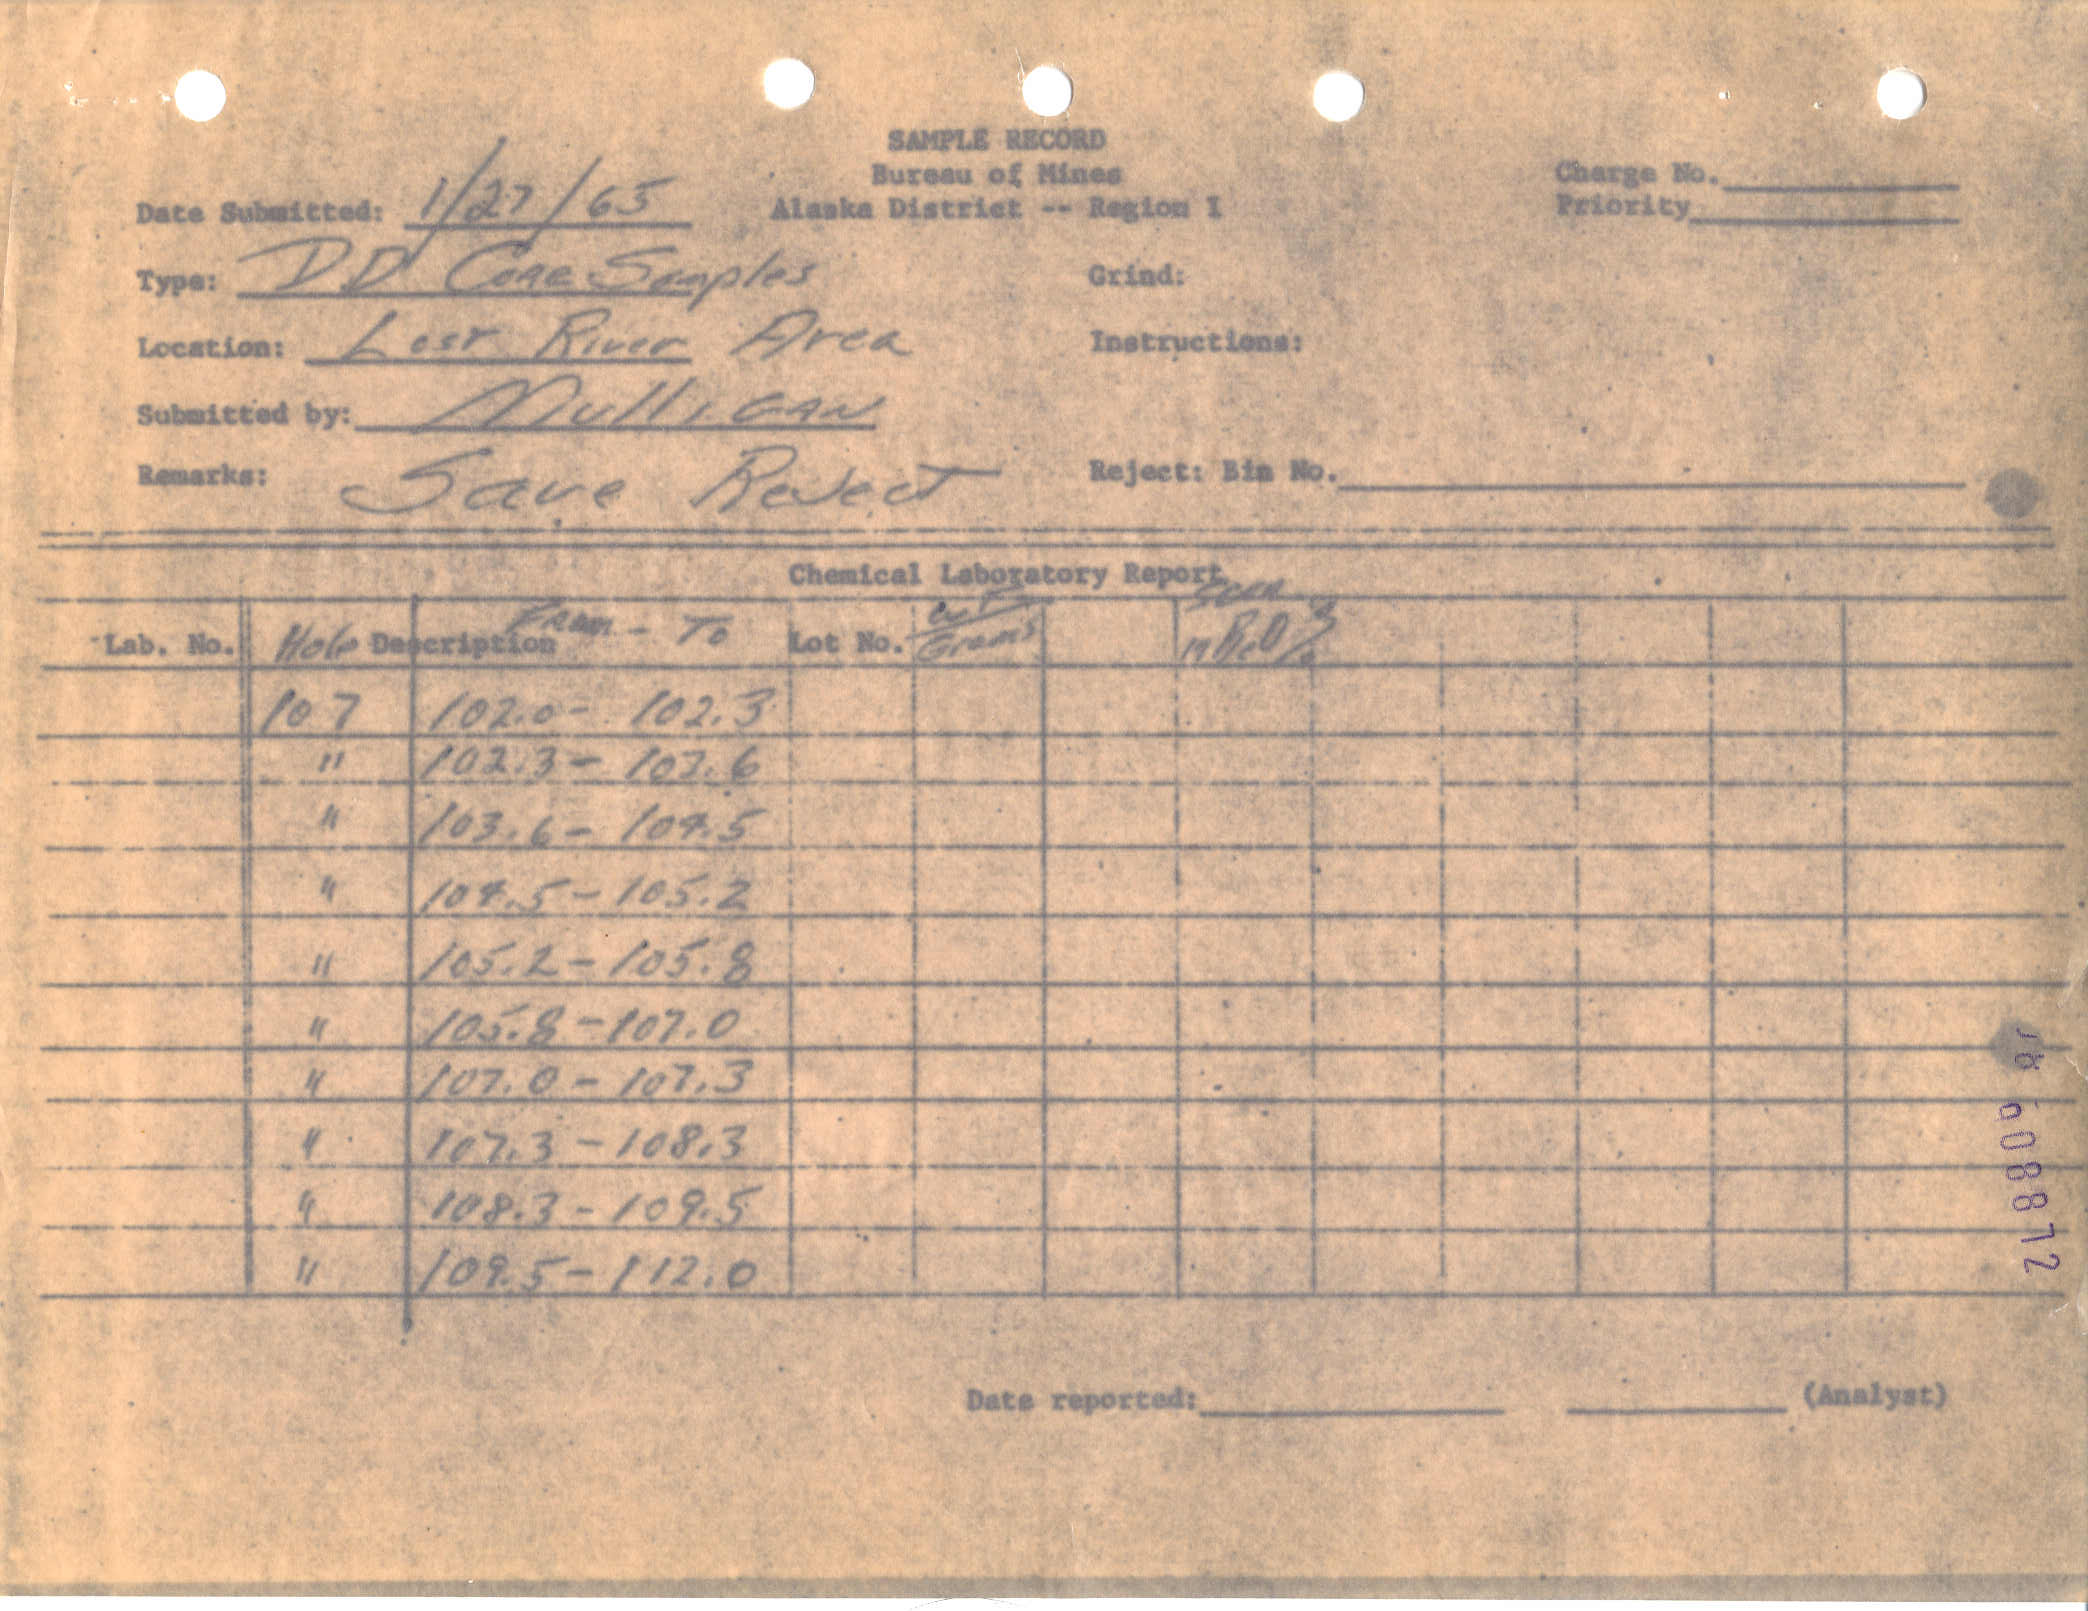 SAMPLE RECORD
Bureau of Mines
Alaska District -- Region I
Charge No.
Priority
Date Submitted: 1/27/65
Type: DD Core Samples
Grind:
Location: Lost River Area
Instructions:
Submitted by: Mulligan
Remarks: Save Reject
Reject: Bin No.
Chemical Laboratory Report
Lab. No. Hole Description From - To Lot No. Wt Grams BeO %
107 102.0 - 102.3
" 102.3 - 103.6
" 103.6 - 104.5
" 104.5 - 105.2
" 105.2 - 105.8
" 105.8 - 107.0
" 107.0 - 107.3
" 107.3 - 108.3
" 108.3 - 109.5
" 109.5 - 112.0
Date reported: (Analyst)